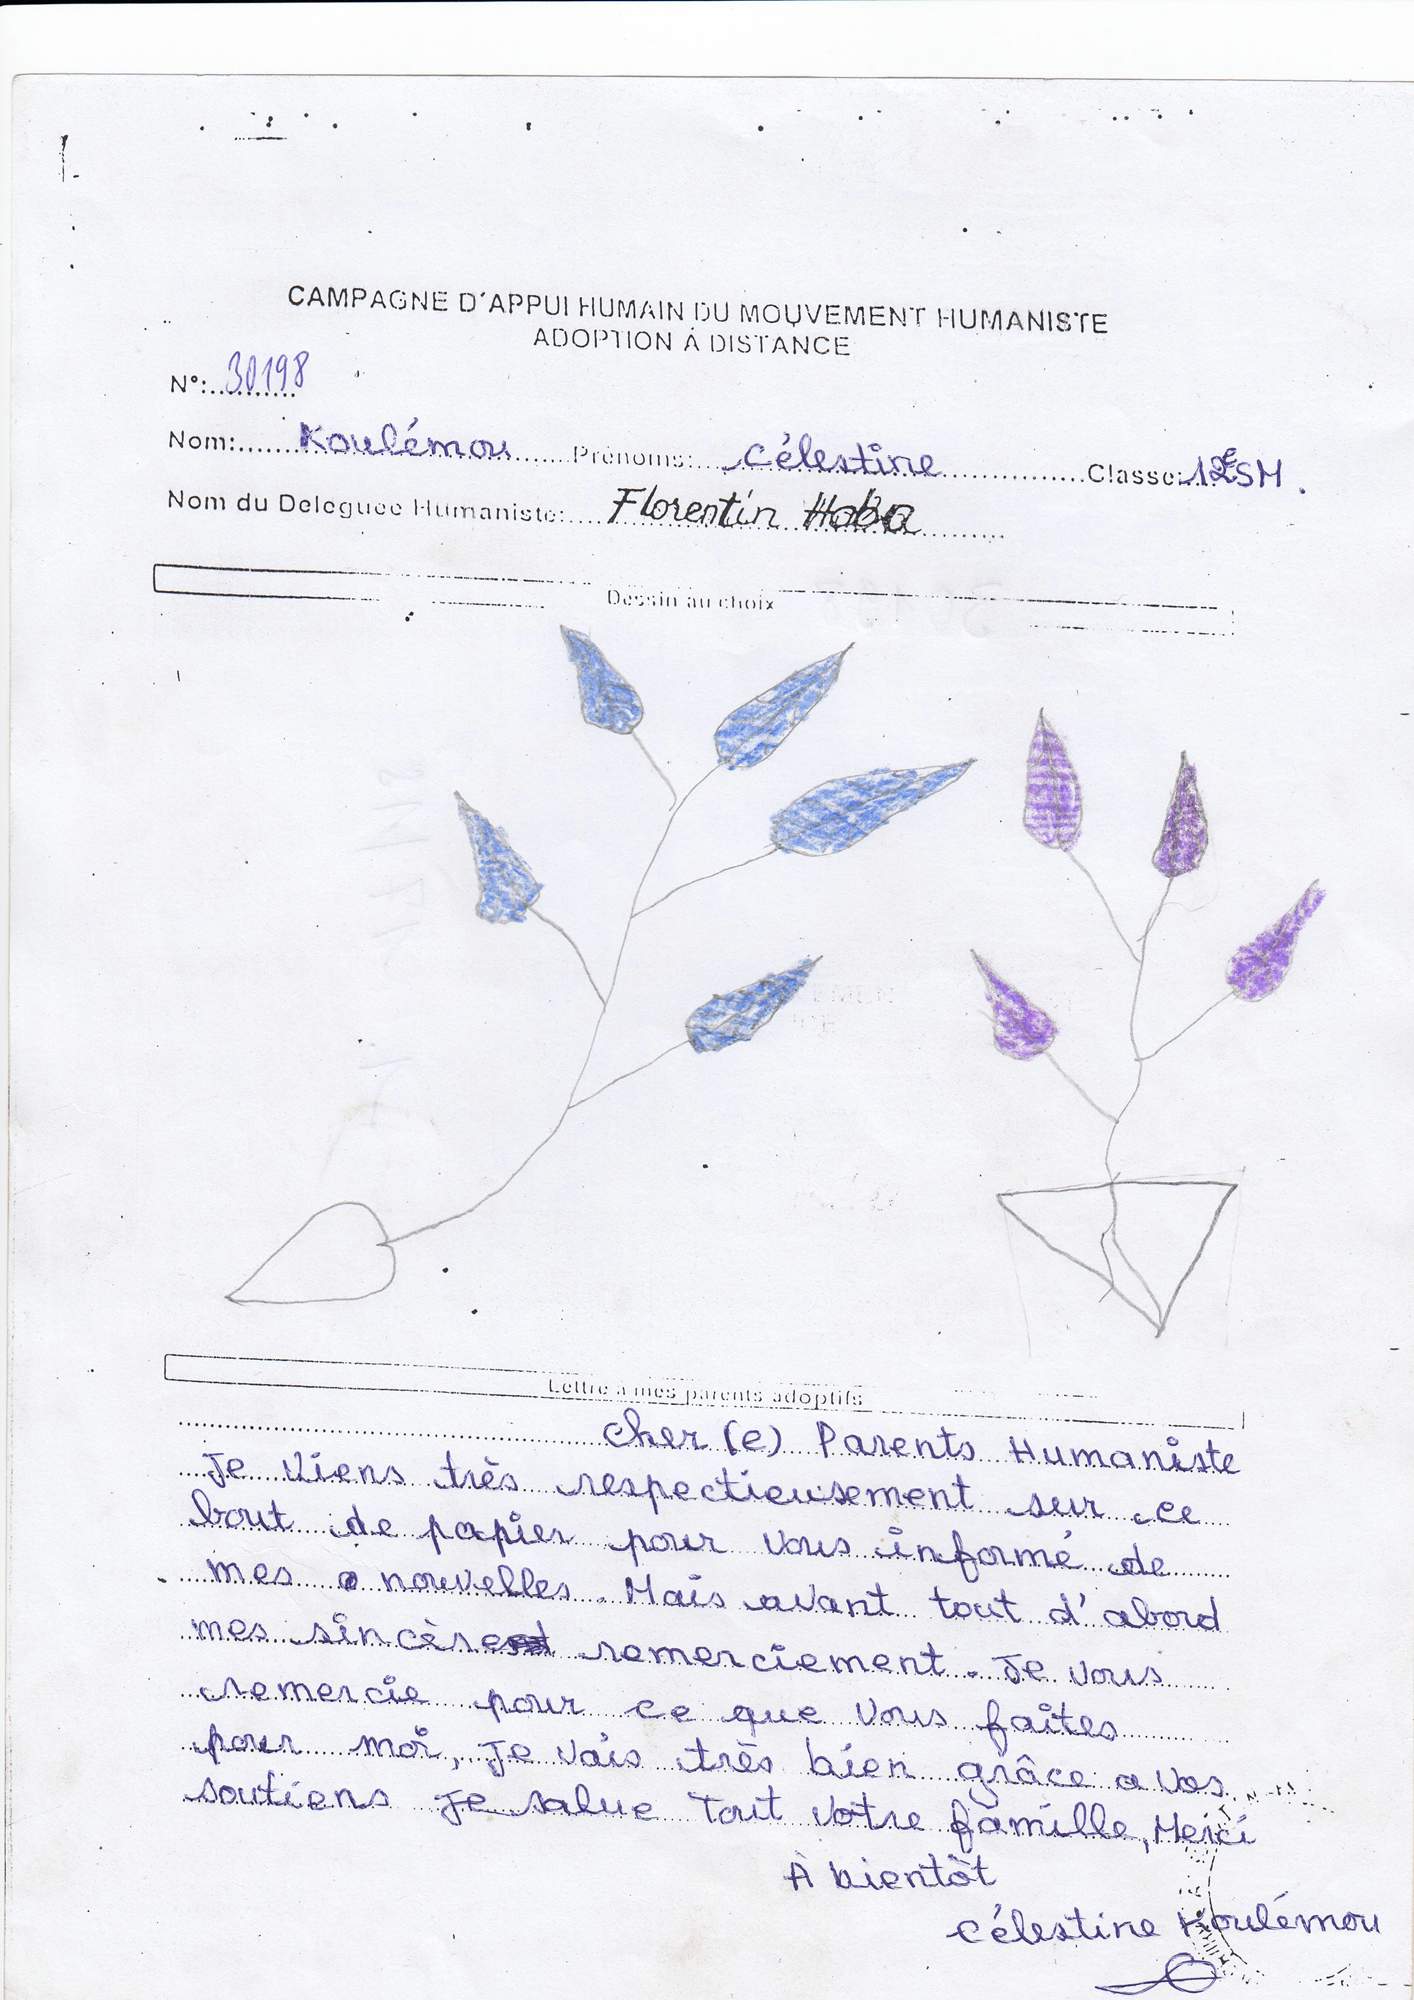 CAMPAGNE D'APPUI HUMAIN DU MOUVEMENT HUMANISTE
ADOPTION À DISTANCE
N°: 30198
Nom: Koulémou Prénoms: Célestine Classe: 12ᵉSM.
Nom du Deleguée Humaniste: Florentin Haba
Dessin au choix
Lettre à mes parents adoptifs
Cher (e) Parents Humaniste
Je viens très respectieusement sur ce
bout de papier pour vous informé de
mes nouvelles. Mais avant tout d'abord
mes sincère remerciement. Je vous
remercie pour ce que vous faites
pour moi, Je vais très bien grâce a vos
soutiens Je salue Tout votre famille, Merci
À bientôt
Célestine Koulémou